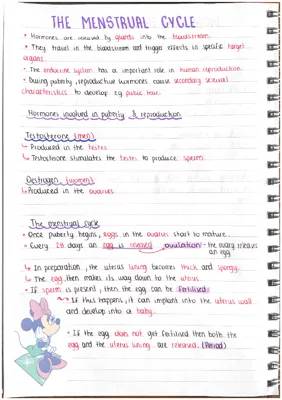 THE MENSTRUAL CYCLE
• Hormones are released by glands into the bloodstream.
• They travel in the bloodstream and trigger effects in specific target
organs.
• The endocrine system has a important role in human reproduction.
• During puberty, reproductive hormones cause secondary sexual
characteristics to develop e.g pubic hair.
Hormones involved in puberty & reproduction
Testosterone (men)
↳ Produced in the testes
↳ Testosterone stimulates the testes to produce sperm.
Oestrogen (women)
↳ Produced in the ovaries
The menstrual cycle
• Once puberty begins, eggs in the ovaries start to mature.
• Every 28 days an egg is released ovulation - the ovary releases
an egg
↳ In preparation, the uterus lining becomes thick and spongy.
↳ The egg then makes its way down to the uterus.
• If sperm is present, then the egg can be fertilised
↳ If this happens, it can implant into the uterus wall
and develop into a baby.
• If the egg does not get fertilised then both the
egg and the uterus lining are released. (Period)